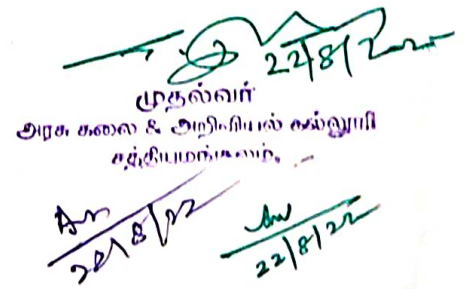 22/8/2022
முதல்வர்
அரசு கலை & அறிவியல் கல்லூரி
சத்தியமங்கலம்.
22/8/22
22/8/22